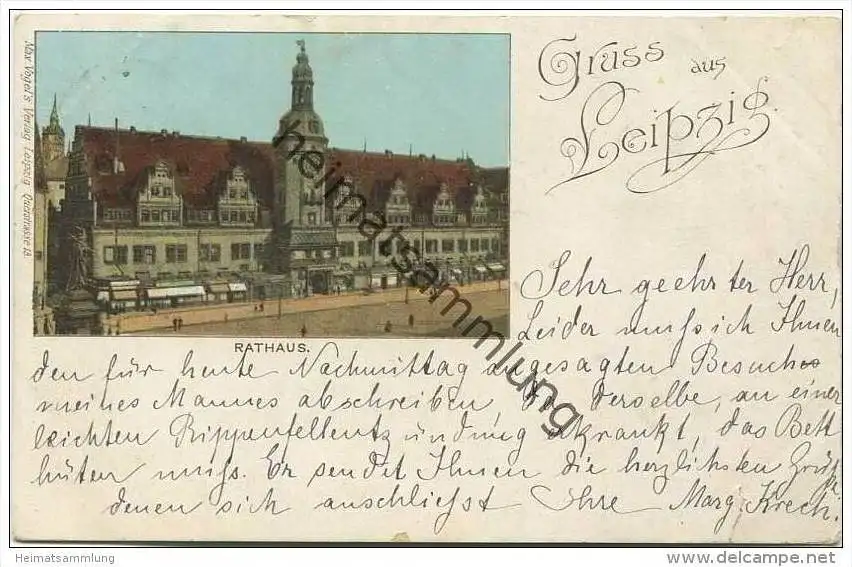 Gruss aus
Leipzig.
Max Vogel's Verlag, Leipzig,
RATHAUS.
Sehr geehrter Herr,
Leider muss ich Ihnen
den für heute Nachmittag angesagten Besuch
meines Mannes abschreiben, da derselbe, an einer
leichten Rippenfellentzündung erkrankt, das Bett
hüten muss. Er sendet Ihnen die herzlichsten Grüße
denen sich anschliesst Ihre Marg. Krech.
heimatsammlung
Heimatsammlung
www.delcampe.net